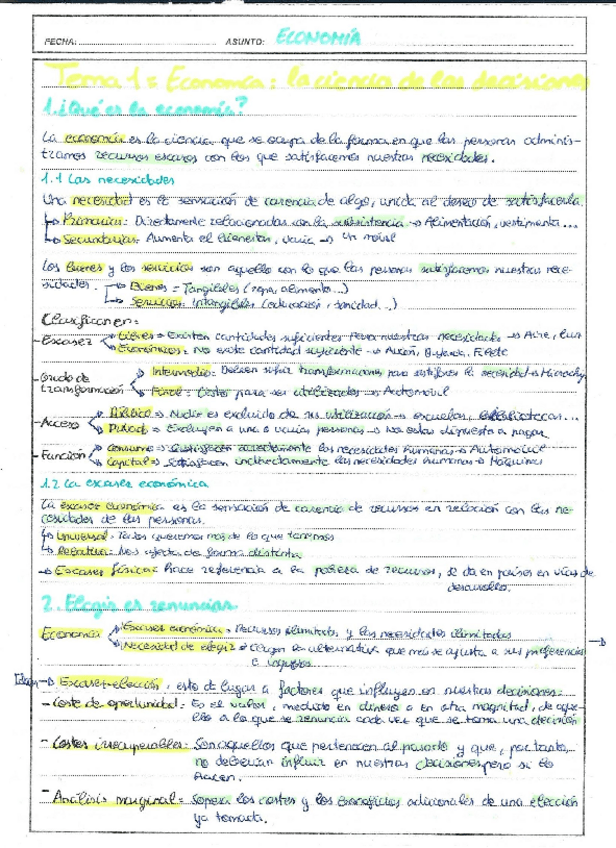 FECHA: ASUNTO: ECONOMÍA
Tema 1: Economía: la ciencia de las decisiones
1. ¿Qué es la economía?
La economía es la ciencia que se ocupa de la forma en que las personas adminis-
tramos recursos escasos con los que satisfacemos nuestras necesidades.
1.1 Las necesidades
Una necesidad es la sensación de carencia de algo, unida al deseo de satisfacerla.
Primarias: Directamente relacionadas con la subsistencia → Alimentación, vestimenta...
Secundarias: Aumenta el bienestar, varía → Un móvil
Los bienes y los servicios son aquello con lo que las personas satisfacemos nuestras nece-
sidades. Bienes = Tangibles (ropa, alimento...)
Servicios: Intangibles (educación, sanidad...)
Clasifican en:
- Escasez Libres = Existen cantidades suficientes para nuestras necesidades → Aire, luz
Económicos: No existe cantidad suficiente →
- Grado de transformación Intermedio: Deben sufrir transformaciones para satisfacer la necesidad →
Final: Listos para ser utilizados → Automóvil
- Acceso Público → Nadie es excluido de su utilización → escuelas, bibliotecas...
Privado: Excluyen a una o varias personas → No estás dispuesto a pagar
- Función Consumo → Satisfacen directamente las necesidades humanas → Automóvil
Capital → Satisfacen indirectamente las necesidades humanas → Máquinas
1.2 La escasez económica
La escasez económica es la sensación de carencia de recursos en relación con las ne-
cesidades de las personas.
Universal: Todos queremos más de lo que tenemos
Relativa: Nos afecta de forma distinta
→ Escasez física: Hace referencia a la pobreza de recursos, se da en países en vías de
desarrollo.
2. Elegir es renunciar
Economía Escasez económica: Recursos limitados y las necesidades ilimitadas
Necesidad de elegir: Elegir la alternativa que más se ajusta a sus preferencias
e ingresos
→ Escasez-elección, esto da lugar a factores que influyen en nuestras decisiones:
- Coste de oportunidad: Es el valor, medido en dinero o en otra magnitud, de aque-
llo a lo que se renuncia cada vez que se toma una decisión
- Costes irrecuperables: Son aquellos que pertenecen al pasado y que, por tanto,
no deberían influir en nuestras decisiones pero sí lo
hacen.
- Análisis marginal = Sopesa los costes y los beneficios adicionales de una elección
ya tomada.